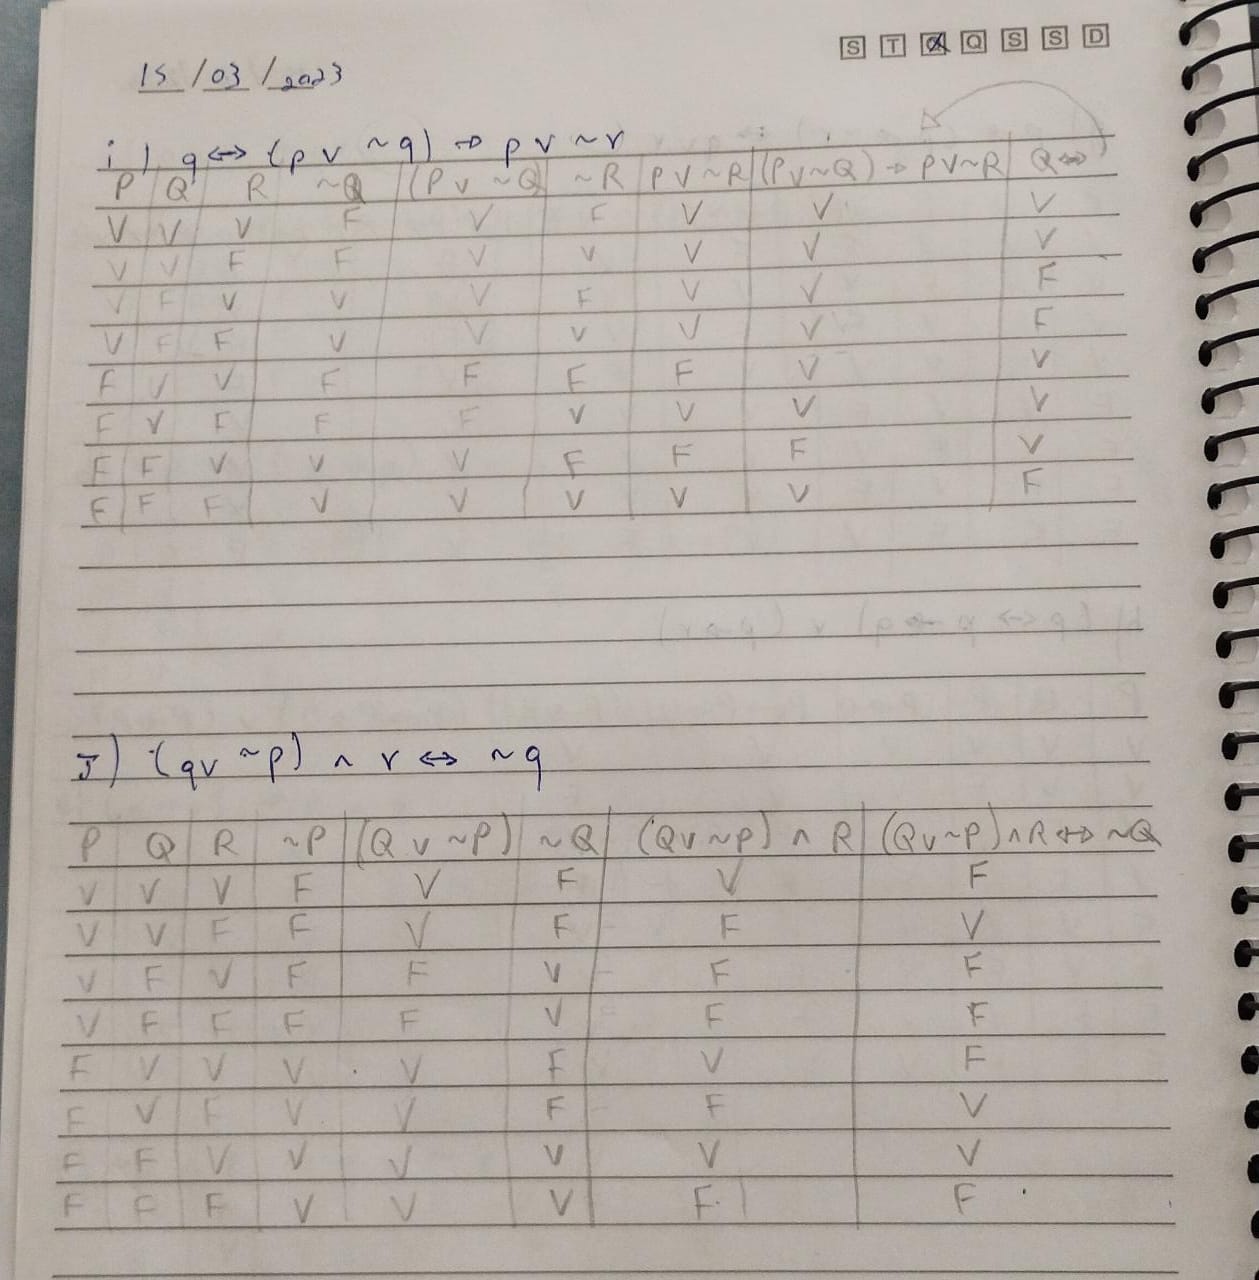 S T Q Q S S D
15/03/2023
i) q ↔ (p ∨ ~q) → p ∨ ~r
P Q R ~Q (P ∨ ~Q) ~R P ∨ ~R (P ∨ ~Q) → P ∨ ~R Q ↔
V V V F V F V V V
V V F F V V V V V
V F V V V F V V F
V F F V V V V V F
F V V F F F F V V
F V F F F V V V V
F F V V V F F F V
F F F V V V V V F
J) (q ∨ ~p) ∧ r ↔ ~q
P Q R ~P (Q ∨ ~P) ~Q (Q ∨ ~P) ∧ R (Q ∨ ~P) ∧ R ↔ ~Q
V V V F V F V F
V V F F V F F V
V F V F F V F F
V F F F F V F F
F V V V V F V F
F V F V V F F V
F F V V V V V V
F F F V V V F F